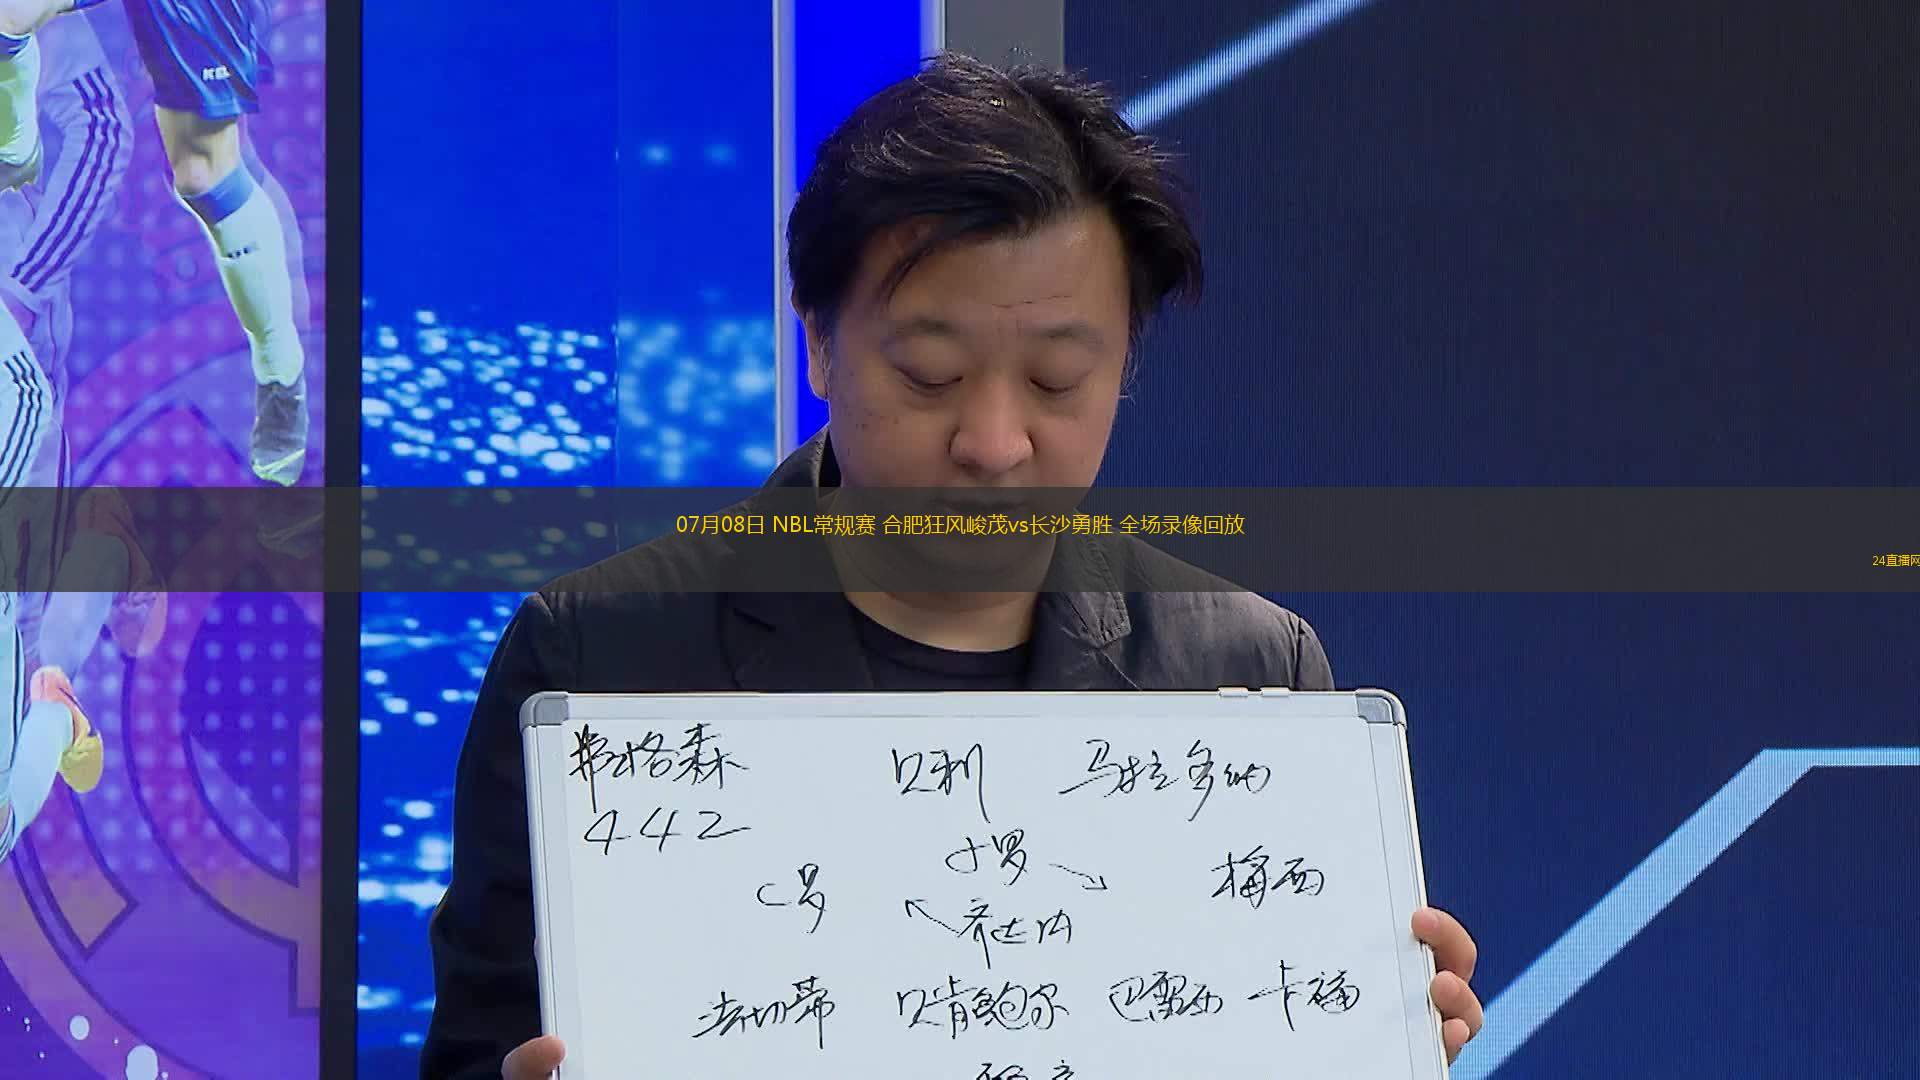 KEL
07月08日 NBL常规赛 合肥狂风峻茂vs长沙勇胜 全场录像回放
24直播网
弗格森 贝利 马拉多纳
442
小罗
C罗 梅西
齐达内
法切蒂 贝肯鲍尔 巴雷西 卡福